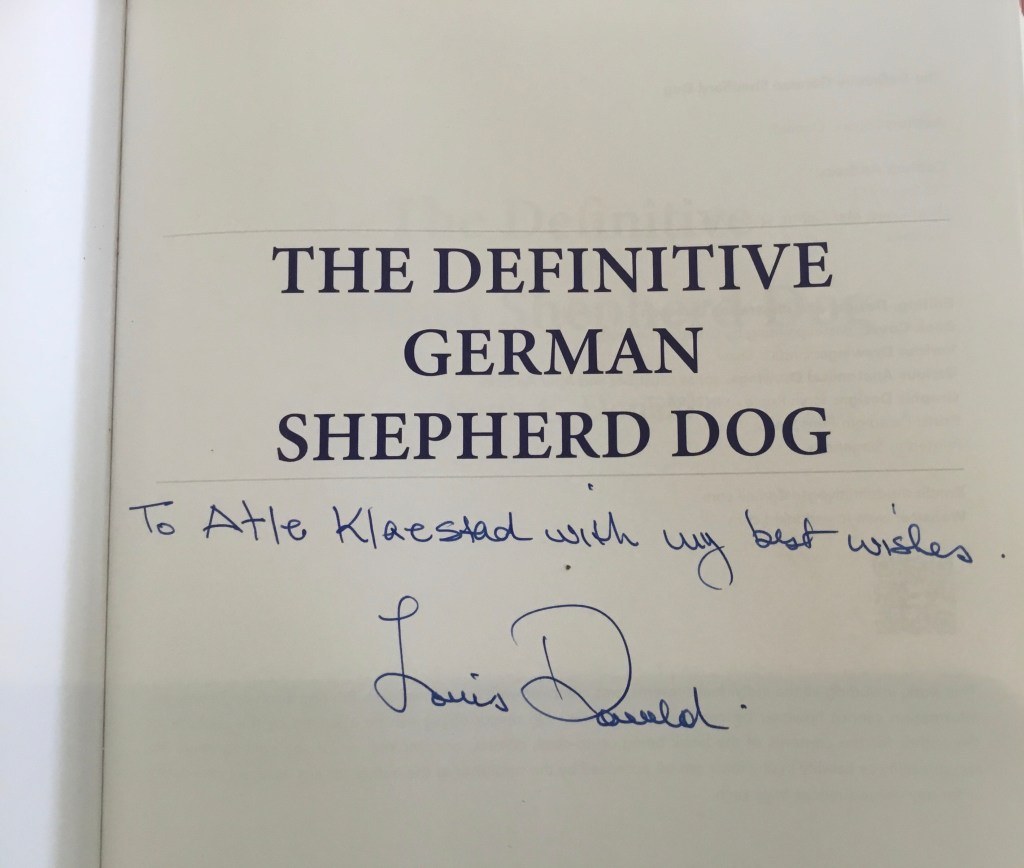 THE DEFINITIVE
GERMAN
SHEPHERD DOG
To Atle Klaestad with my best wishes.
Louis Donald.